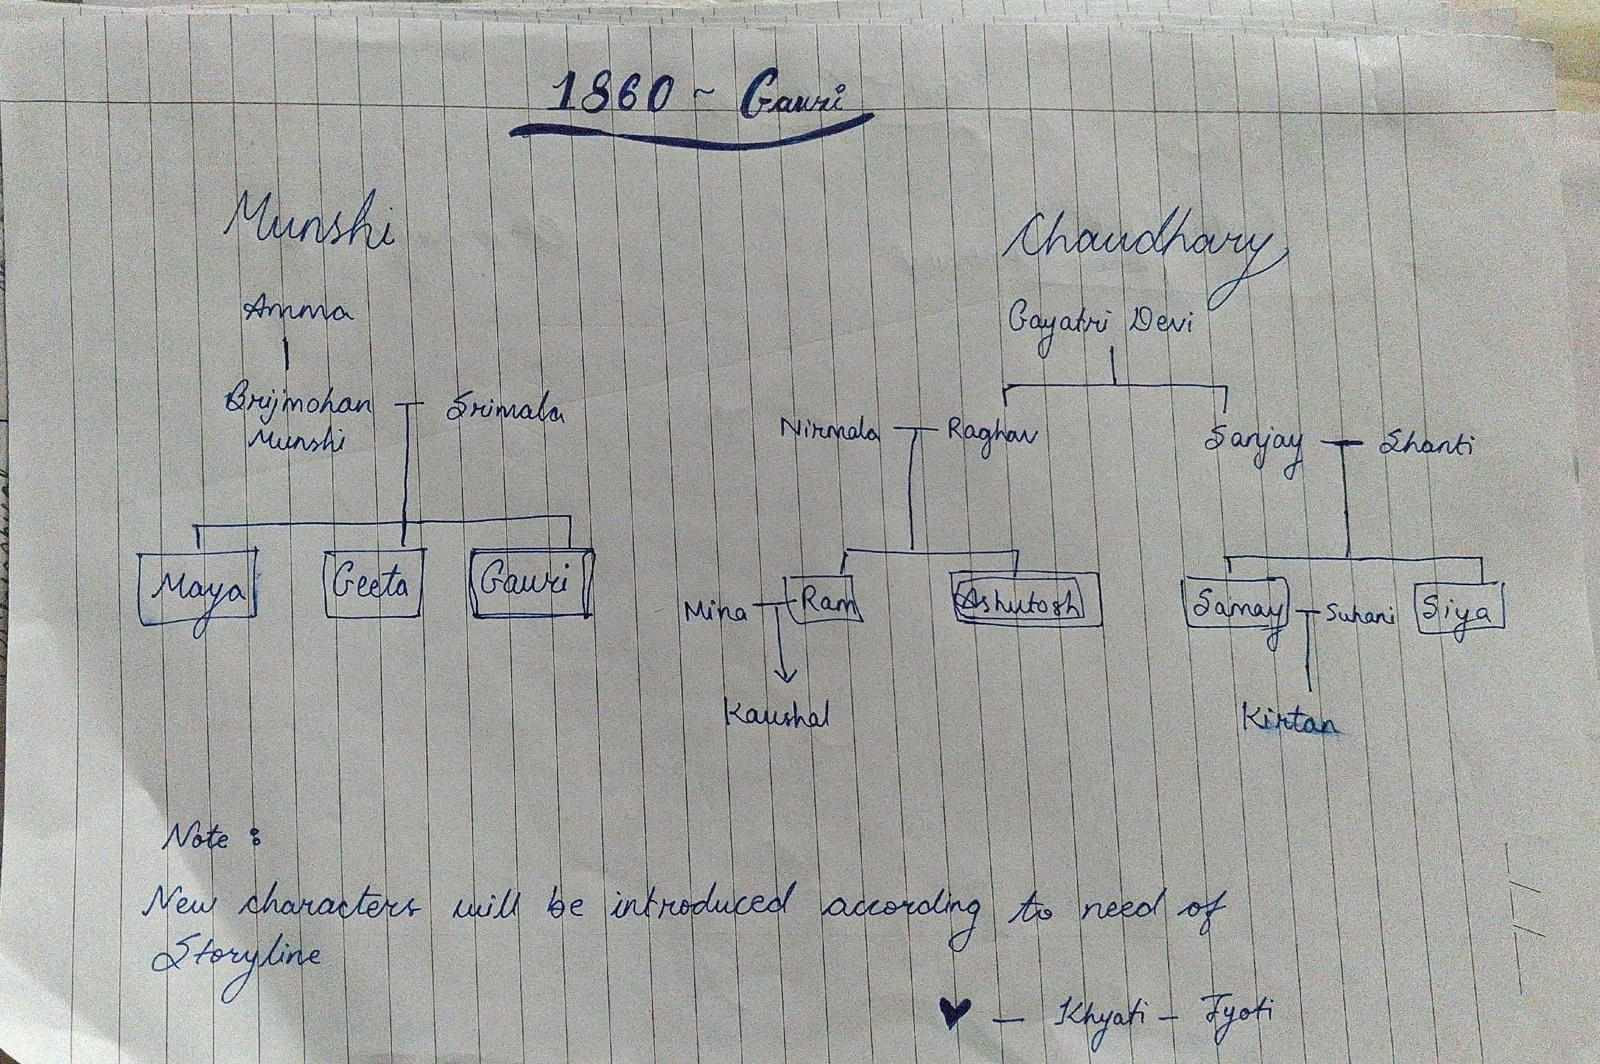 1860 ~ Gauri
Munshi
Chaudhary
Amma
Gayatri Devi
Brijmohan Srimala
Munshi
Nirmala Raghav Sanjay Shanti
Maya Geeta Gauri
Mina Ram Ashutosh Samay Suhani Siya
Kaushal Kirtan
Note :
New characters will be introduced according to need of
Storyline
♥ - Khyati - Jyoti